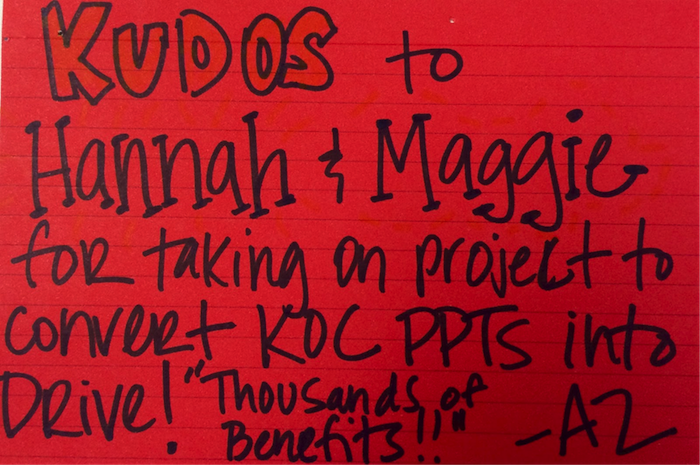 KUDOS to
Hannah & Maggie
for taking on project to
convert KOC PPTS into
Drive! "Thousands of
Benefits!!" -AZ